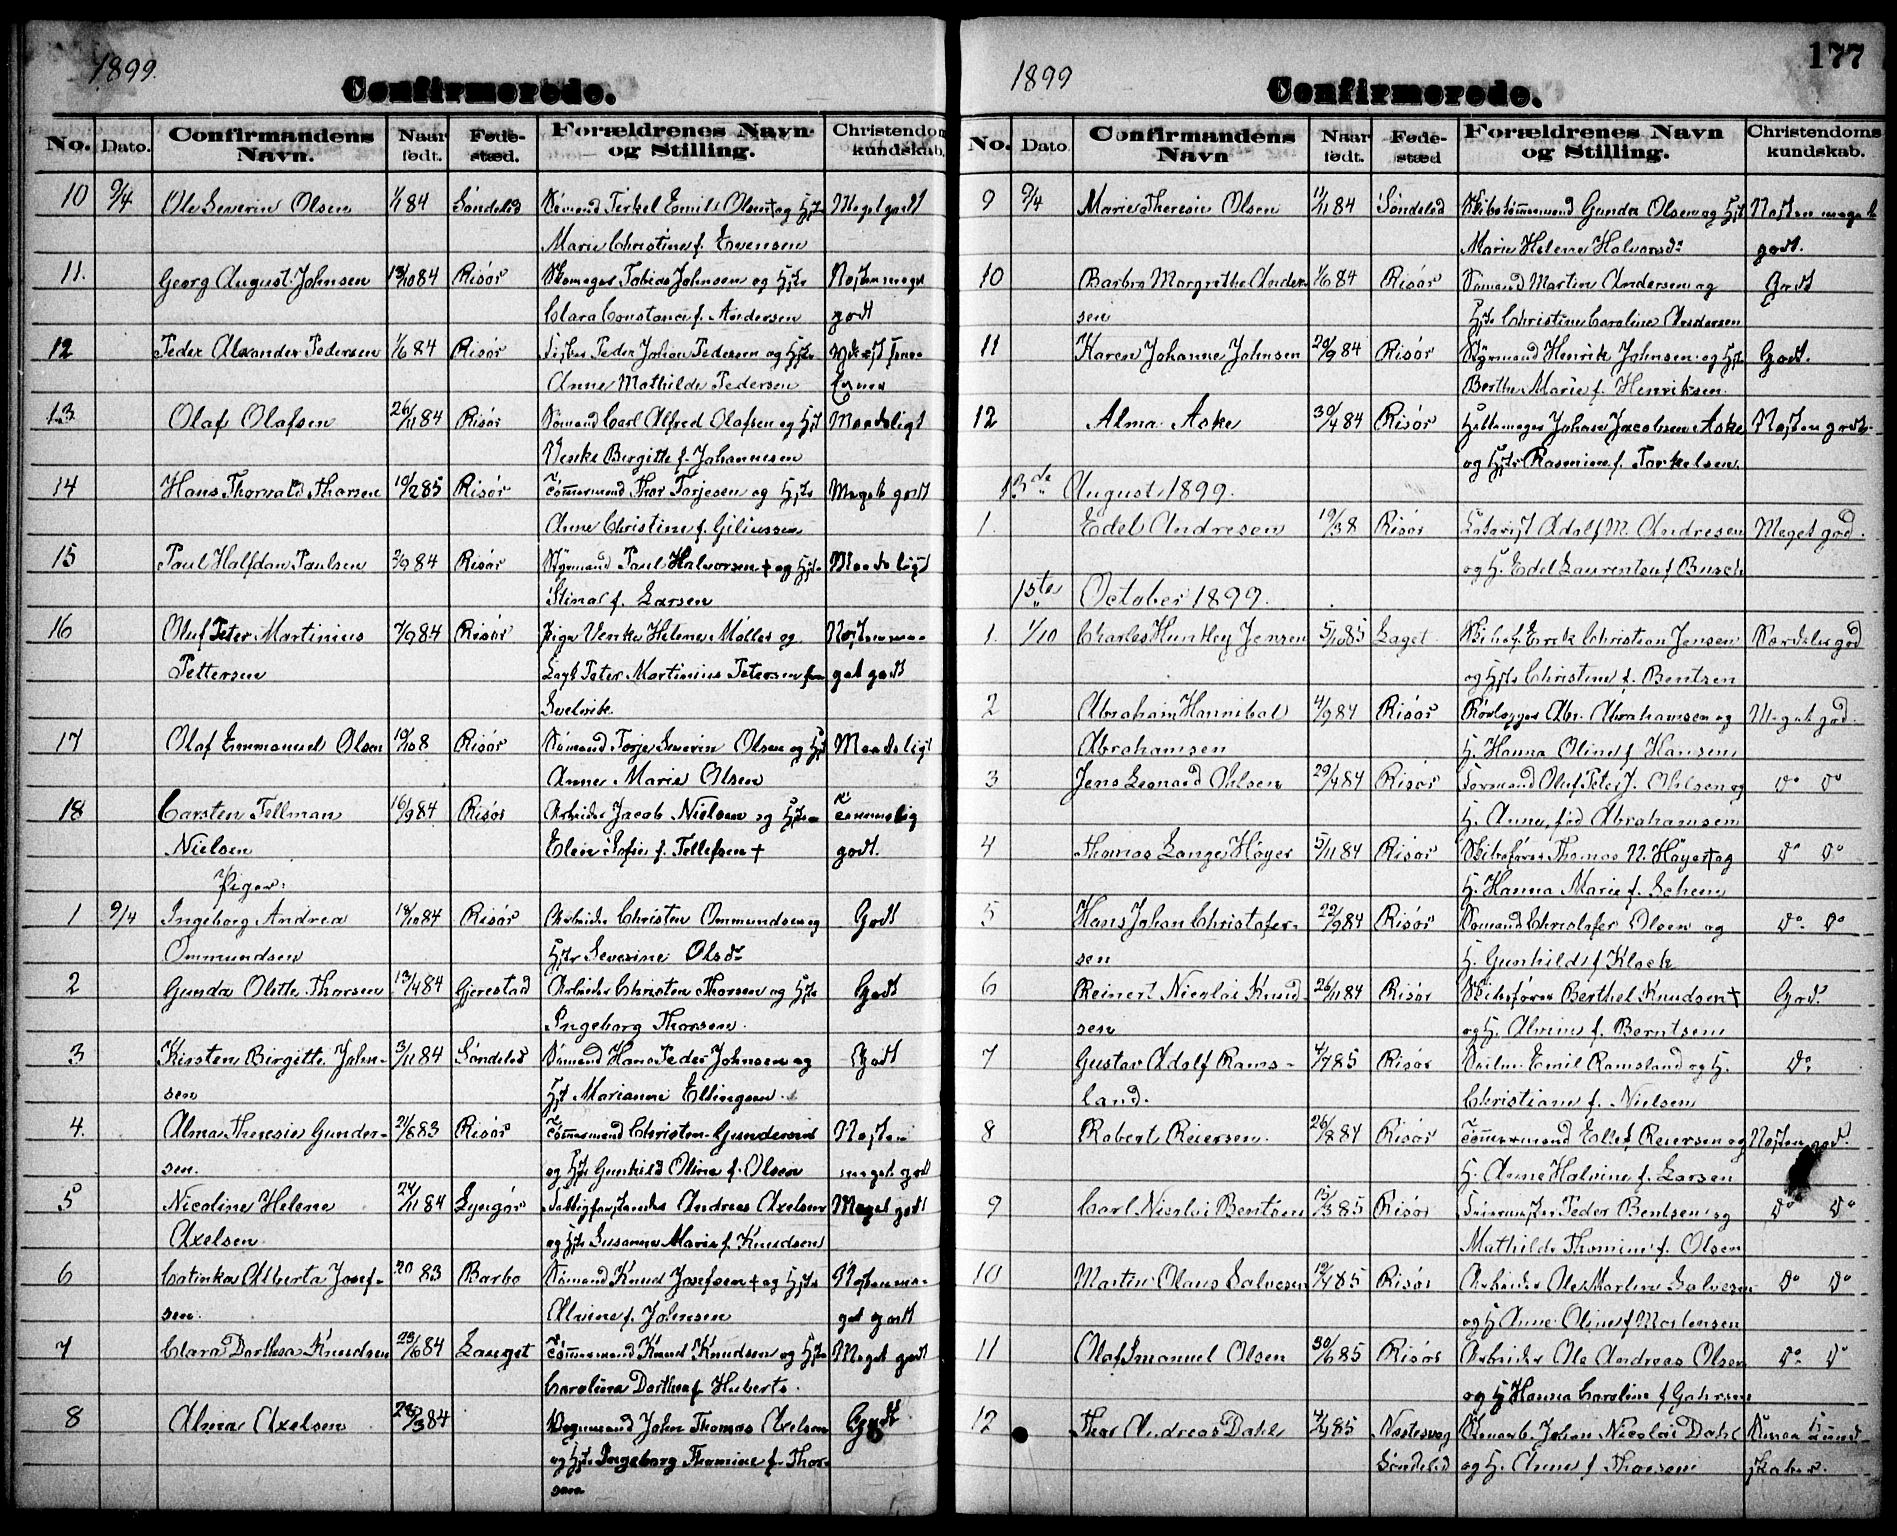 1899.
Confirmerede.
No. Dato. Confirmandens Navn. Naar født. Føde-stæd. Forældrenes Navn og Stilling. Christendoms kundskab.
10 9/4 Ole Severin Olsen 1/1 84 Søndeled Sømand Terkel Emil Olsen† og Hst Meget godt
Marie Christine f. Evensen
11. Georg August Johnsen 13/10 84 Risør Skomager Tobias Johnsen og Hstr Næsten meget
Clara Constance f. Andersen godt
12 Peder Alexander Pedersen 1/6 84 Risør Fisker Peder Johan Pedersen og Hstr
Anne Mathilde Pedersen
13 Olaf Olafsen 26/11 84 Risør Sømand Carl Alfred Olafsen og Hst Maadeligt
Venke Birgitte f. Johannesen
14 Hans Thorvald Thorsen 10/2 85 Risør Tømmermand Thor Torjesen og Hstr Meget godt
Anne Christine f. Giliussen
15 Paul Halfdan Paulsen 2/9 84 Risør Styrmand Paul Halvorsen † og Hstr Maadeligt
Stina f. Larsen
16 Oluf Peter Martinius 7/9 84 Risør Pige Venke Helene Møller og Næsten me-
Pettersen Lagt Peter Martinius Petersen fra get godt
Svelvik.
17 Olaf Emmanuel Olsen 10/10 8 Risør Sømand Torje Severin Olsen og Hst Maadeligt
Anne Marie Olsen
18 Carsten Tellman 16/9 84 Risør Arbeider Jacob Nielsen og Hstr Temmelig
Nielsen Elen Sofie f. Tellefsen † godt.
Piger:
1 9/4 Ingeborg Andrea 18/10 84 Risør Arbeider Christen Ommundsen og Godt
Ommundsen Hstr Severine Olsdr
2 Gunda Olette Thorsen 13/4 84 Gjerestad Arbeider Christen Thorsen og Hstr Godt
Ingeborg Thorsen.
3 Kirsten Birgitte John- 3/11 84 Søndeled Sømand Hans Peder Johnsen og Godt
sen Hst Marianne Ellingsen.
4. Alma Theresie Gunder- 21/8 83 Risør Tømmermand Christen Gundersen Næsten
sen. og Hstr Gunhild Oline f. Olsen meget godt
5 Nicoline Helene 24/11 84 Lyngør Fattigforstander Andreas Axelsen Meget godt
Axelsen. og Hstr Susanne Marie f. Knudsen
6 Catinka Alberta Josef- 20 83 Barbo Sømand Knud Josefsen † og Hstr Næsten me-
sen. Alvine f. Johnsen get godt
7 Clara Dorthea Knudsen 23/6 84 Sauget Tømmermand Knud Knudsen og Hstr Meget godt
Caroline Dorthea f. Huberts.
8 Alma Axelsen 28/3 84 Vognmand John Thomas Axelsen Godt
og Hstr Ingeborg Thomine f. Thor-
sen
177
1899
Confirmerede.
No. Dato Confirmandens Navn Naar født. Føde-stæd Forældrenes Navn og Stilling. Christendoms kundskab.
9 9/4 Marie Theresie Olsen 11/11 84 Søndeled Skibstømmermand Gunder Olsen og Hst Næsten meget
Marie Helene Halvorsdr godt.
10 Barbra Margrethe Ander- 1/6 84 Risør Sømand Martin Andersen og Godt
sen Hstr Christine Caroline Andersen
11 Karen Johanne Johnsen 20/9 84 Risør Styrmand Henrik Johnsen og Hstr Godt.
Berthe Marie f. Henriksen.
12 Alma Aske 30/4 84 Risør Johan Jacobsen Aske Næsten godt.
og Hstr Rasmine f. Torkelsen.
13de August 1899.
1. Edel Andresen 19/3 8 Risør Adolf M. Andresen Meget god.
og H. Edel Laurentse f Busch
1ste October 1899.
1. 1/10 Charles Huntley Jensen 5/10 85 Laget Skibsf. Erik Christian Jensen Særdeles god
og Hstr Christine f. Bentsen
2 Abraham Hannibal 4/9 84 Risør Abr. Abrahamsen og Meget god.
Abrahamsen H. Hanna Oline f Hansen
3 Jens Leonard Ohlsen 29/4 84 Risør Formand Oluf Peter J. Ohlsen og do do
H. Anne, fød Abrahamsen
4 Thomas Lange Høyer 5/11 84 Risør Skibsfører Thomas N. Høyer † og do do
H. Hanna Marie f. Schem
5 Hans Johan Christofer- 22/9 84 Risør Sømand Christofer Olsen og do. do
sen H. Gunhild f Klock
6 Reinert Nicolai Knud- 26/11 84 Risør Skibsfører Berthel Knudsen † God.
sen og H. Alvine f. Berntsen
7 Gustav Adolf Rams- 4/7 85 Risør Seilm. Emil Ramsland og H. do
land. Christiane f. Nielsen
8 Robert Reiersen. 26/8 84 Risør Tømmermand Ellef Reiersen og Næsten god.
H. Anne Halvine f. Larsen
9 Carl Nicolai Bentsen 15/3 85 Risør Peder Bentsen og do do
Mathilde Thomine f. Olsen
10 Martin Olaus Salvesen 12/4 85 Risør Arbeider Ole Martin Salvesen do do
og H Anne Oline f Mortensen
11 Olaf Imanuel Olsen 30/6 85 Risør Arbeider Ole Andreas Olsen do. do
og H Hanna Caroline f Gahrsen
12 Thor Andreas Dahl 4/4 85 Næstesvag Johan Nicolai Dahl Kund-
Søndeled og H. Anne f Thorsen skaber.